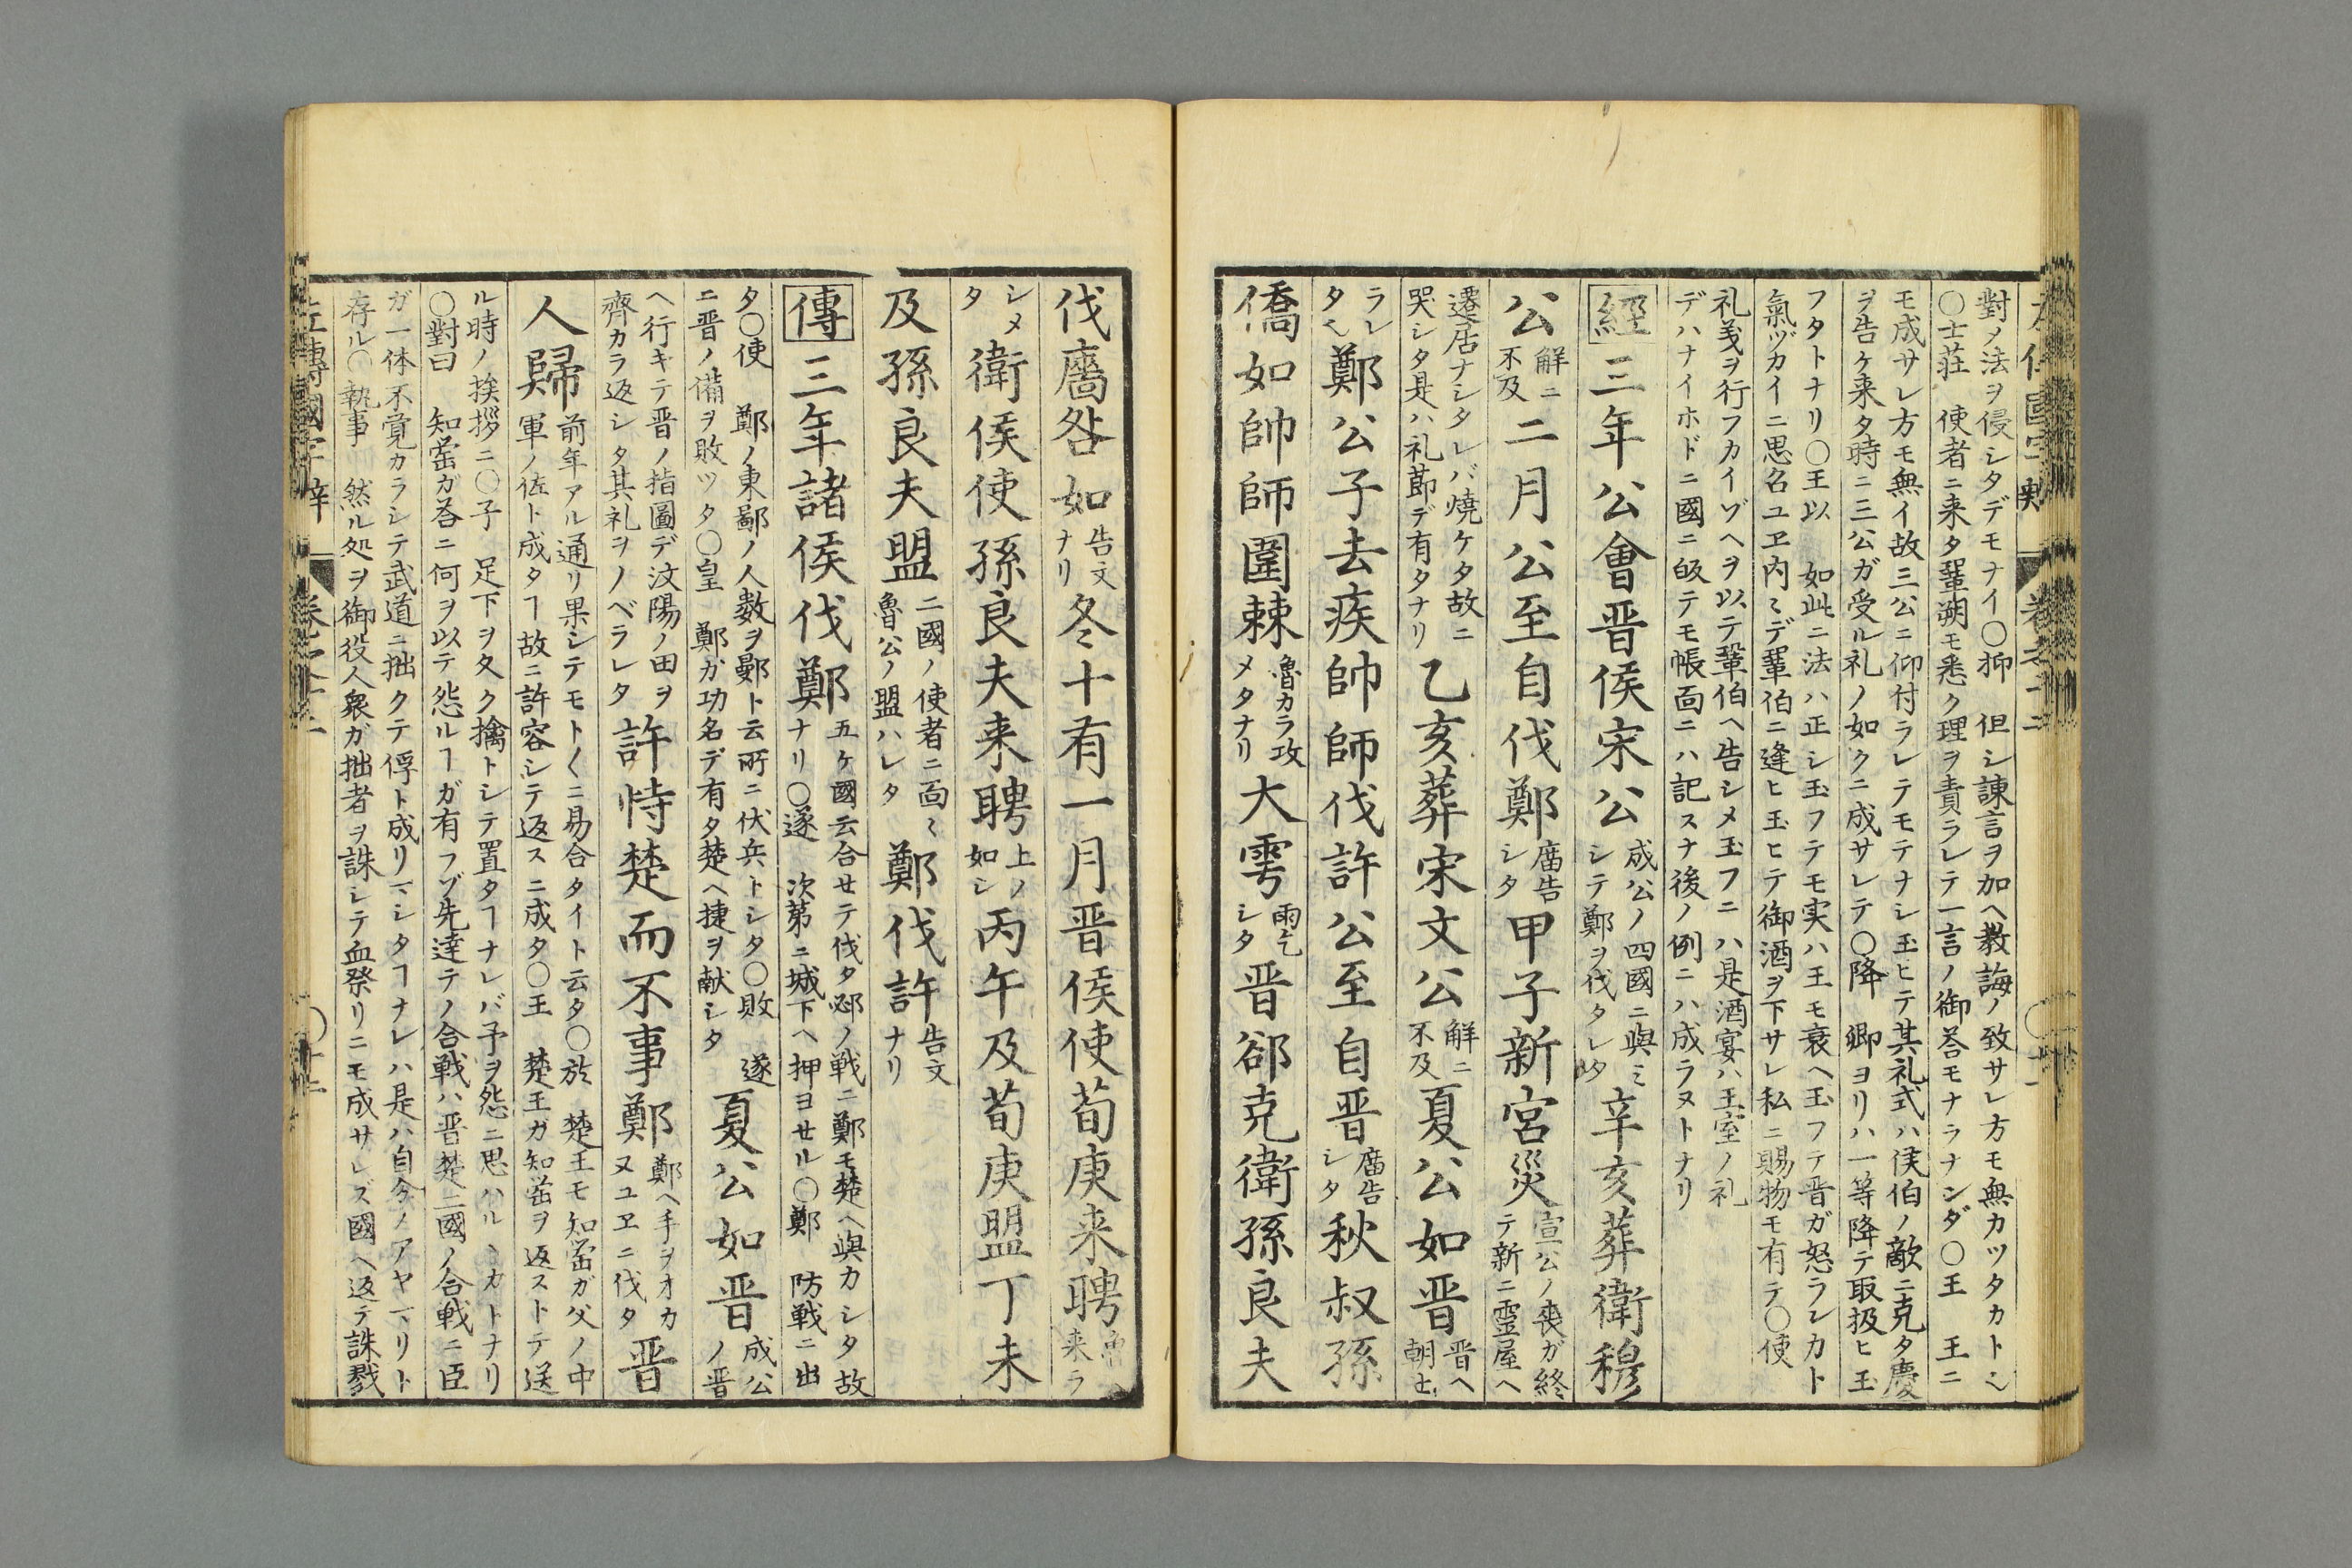 對メ法ヲ侵シタデモナイ〇抑　但シ諌言ヲ加ヘ教誨ノ致サレ方モ無カツタカト也
〇士莊　使者ニ来タ鞏朔モ悉ク理ヲ責ラレテ一言ノ御荅モナラナンダ〇王　王ニ
モ成サレ方モ無イ故三公ニ仰付ラレテモテナシ玉ヒテ其礼式ハ侯伯ノ敵ニ克タ慶
ヲ告ケ来タ時ニ三公ガ受ル礼ノ如クニ成サレテ〇降　卿ヨリハ一等降テ取扱ヒ玉
フタトナリ〇王以　如此ニ法ハ正シ玉フテモ実ハ王モ衰ヘ玉フテ晋ガ怒ラシカト
氣ヅカイニ思名ユヱ内〻デ鞏伯ニ逢ヒ玉ヒテ御酒ヲ下サレ私ニ賜物モ有テ〇使
礼義ヲ行フカイゾヘヲ以テ鞏伯ヘ告シメ玉フニハ是酒宴ハ王室ノ礼
デハナイホドニ國ニ皈テモ帳面ニハ記スナ後ノ例ニハ成ラヌトナリ
經三年公會晋侯宋公
成公ノ四國ニ與ミ
シテ鄭ヲ伐タレタ
辛亥葬衛穆
公
解ニ
不及
二月公至自伐鄭
廣告
シタ
甲子新宮災
宣公ノ喪ガ終
テ新ニ霊屋ヘ
遷居ナシタレバ焼ケタ故ニ
哭シタ是ハ礼莭デ有タナリ
乙亥葬宋文公
解ニ
不及
夏公如晋
晋ヘ
朝セ
ラレ
タヘ
鄭公子去疾帥師伐許公至自晋
廣告
シタ
秋叔孫
僑如帥師圍棘
魯カラ攻
メタナリ
大雩
雨乞
シタ
晋郤克衛孫良夫
伐廧咎如
告文
ナリ
冬十有一月晋侯使荀庚来聘
来ラ
シメ
タ
衛侯使孫良夫来聘
上ノ
如シ
丙午及荀庚盟丁未
及孫良夫盟
二國ノ使者ニ面〻
魯公ノ盟ハレタ
鄭伐許
告文
ナリ
傳三年諸侯伐鄭
五ケ國云合セテ伐タ邲ノ戦ニ鄭モ楚ヘ與カシタ故
ナリ〇遂　次第ニ城下ヘ押ヨセル〇鄭　防戦ニ出
タ〇使　鄭ノ東鄙ノ人数ヲ鄤ト云所ニ伏兵トシタ〇敗　遂
ニ晋ノ備ヲ敗ツタ〇皇　鄭ガ功名デ有タ楚ヘ捷ヲ献シタ
夏公如晋
成公
ノ晋
ヘ行キテ晋ノ指圖デ汶陽ノ田ヲ
齊カラ返シタ其礼ヲノベラレタ
許恃楚而不事鄭
鄭ヘ手ヲオカ
ヌユヱニ伐タ
晋
人歸
前年アル通リ果シテモト〱ニ易合タイト云タ〇於　楚王モ知罃ガ父ノ中
軍ノ佐ト成タヿ故ニ許容シテ返スニ成タ〇王　楚王ガ知罃ヲ返ストテ送
ル時ノ挨拶ニ〇子　足下ヲ久ク擒トシテ置タヿナレバ予ヲ怨ニ思ハルヽカトナリ
〇對曰　知罃ガ荅ニ何ヲ以テ怨ルヿガ有フゾ先達テノ合戦ハ晋楚二國ノ合戦ニ臣
ガ一体不覚カラシテ武道ニ拙クテ俘ト成リマシタヿナレハ是ハ自分ノアヤマリト
存ル〇執事　然ル処ヲ御役人衆ガ拙者ヲ誅シテ血祭リニモ成サレズ國ヘ返テ誅戮